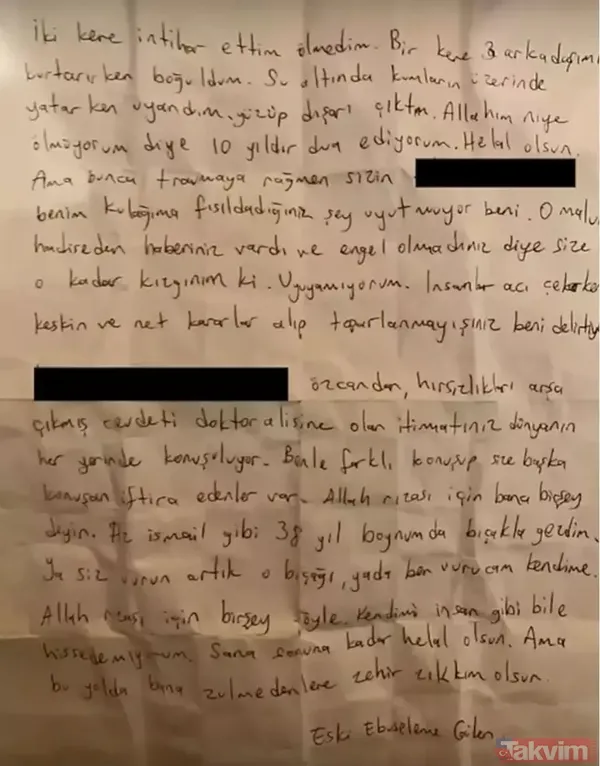 İki kere intihar ettim ölmedim. Bir kere 3 arkadaşımı
kurtarırken boğuldum. Su altında kumların üzerinde
yatarken uyandım. yüzüp dışarı çıktım. Allahım niye
ölmüyorum diye 10 yıldır dua ediyorum. Helal olsun.
Ama bunca travmaya rağmen sizin
benim kulağıma fısıldadığınız şey uyutmuyor beni. O malu
hadiseden haberiniz vardı ve engel olmadınız diye size
o kadar kızgınım ki. Uyuyamıyorum. İnsanlar acı çekerke
keskin ve net kararlar alıp toparlanmayışınız beni delirtiy
özcandan, hırsızlıkları arşa
çıkmış cevdeti doktor alisine olan itimatınız dünyanın
her yerinde konuşuluyor. Benle farklı konuşup size başka
konuşan iftira edenler var. Allah rızası için bana birşey
deyin. Hz ismail gibi 38 yıl boynumda bıçakla gezdim.
Ya siz vurun artık o bıçağı, yada ben vurucam kendime.
Allah rızası için birşey söyle. Kendimi insan gibi bile
hissedemiyorum. Sana sonuna kadar helal olsun. Ama
bu yolda bana zulmedenlere zehir zıkkım olsun.
Eski Ebuseleme Gülen
Takvim